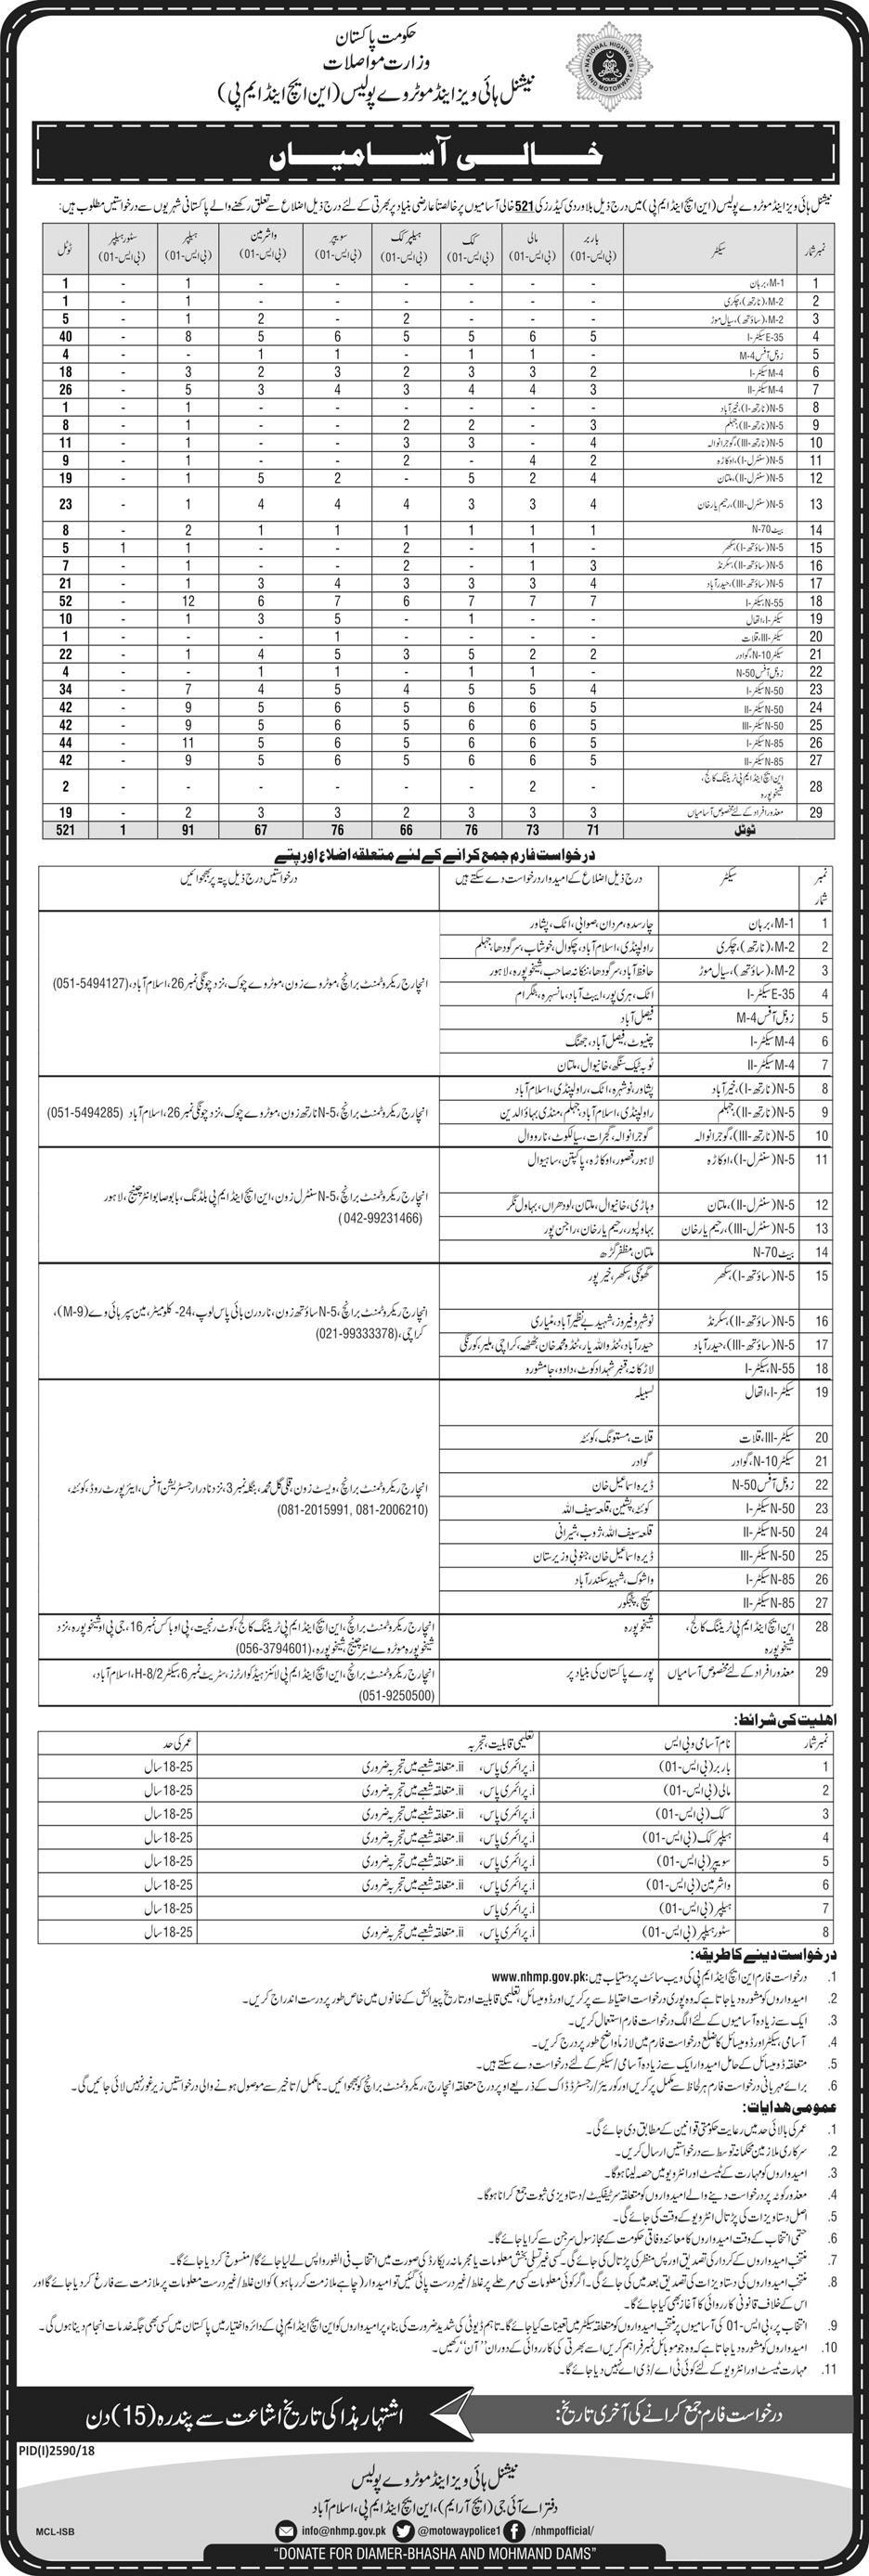 حکومت پاکستان
وزارت مواصلات
نیشنل ہائی ویز اینڈ موٹروے پولیس (این ایچ اینڈ ایم پی)
NATIONAL HIGHWAYS AND MOTORWAY POLICE
خالی آسامیاں
نیشنل ہائی ویز اینڈ موٹروے پولیس (این ایچ اینڈ ایم پی) میں درج ذیل بلاوردی کیڈرز کی 521 خالی آسامیوں پر خالصتاً عارضی بنیاد پر بھرتی کے لئے درج ذیل اضلاع سے تعلق رکھنے والے پاکستانی شہریوں سے درخواستیں مطلوب ہیں:
نمبر شمار سیکٹر باربر (بی ایس-01) مالی (بی ایس-01) کک (بی ایس-01) ہیلپر کک (بی ایس-01) سویپر (بی ایس-01) واشرمین (بی ایس-01) ہیلپر (بی ایس-01) سٹور ہیلپر (بی ایس-01) ٹوٹل
1 M-1، برہان - - - - - - 1 - 1
2 M-2، (نارتھ)، چکری - - - - - - 1 - 1
3 M-2، (ساؤتھ)، سیال موڑ - - - 2 - 2 1 - 5
4 E-35 سیکٹر-I 5 6 5 5 6 5 8 - 40
5 زونل آفس M-4 - 1 1 - 1 1 - - 4
6 M-4 سیکٹر-I 2 3 3 2 3 2 3 - 18
7 M-4 سیکٹر-II 3 4 4 3 4 3 5 - 26
8 N-5 (نارتھ-I)، خیرآباد - - - - - - 1 - 1
9 N-5 (نارتھ-II)، جہلم 3 - 2 2 - - 1 - 8
10 N-5 (نارتھ-III)، گوجرانوالہ 4 - 3 3 - - 1 - 11
11 N-5 (سنٹرل-I)، اوکاڑہ 2 4 - 2 - - 1 - 9
12 N-5 (سنٹرل-II)، ملتان 4 2 5 - 2 5 1 - 19
13 N-5 (سنٹرل-III)، رحیم یار خان 4 3 3 4 4 4 1 - 23
14 بیٹ N-70 1 1 1 1 1 1 2 - 8
15 N-5 (ساؤتھ-I)، سکھر - 1 - 2 - - 1 1 5
16 N-5 (ساؤتھ-II)، سکرنڈ 3 1 - 2 - - 1 - 7
17 N-5 (ساؤتھ-III)، حیدرآباد 4 3 3 3 4 3 1 - 21
18 N-55، سیکٹر-I 7 7 7 6 7 6 12 - 52
19 سیکٹر-I، اتھال - - 1 - 5 3 1 - 10
20 سیکٹر-III، قلات - - - - 1 - - - 1
21 سیکٹر N-10، گوادر 2 2 5 3 5 4 1 - 22
22 زونل آفس N-50 - 1 1 - 1 1 - - 4
23 N-50 سیکٹر-I 4 5 5 4 5 4 7 - 34
24 N-50 سیکٹر-II 5 6 6 5 6 5 9 - 42
25 N-50 سیکٹر-III 5 6 6 5 6 5 9 - 42
26 N-85 سیکٹر-I 5 6 6 5 6 5 11 - 44
27 N-85 سیکٹر-II 5 6 6 5 6 5 9 - 42
28 این ایچ اینڈ ایم پی ٹریننگ کالج، شیخوپورہ - 2 - - - - - - 2
29 معذور افراد کے لئے مخصوص آسامیاں 3 3 3 2 3 3 2 - 19
ٹوٹل 71 73 76 66 76 67 91 1 521
درخواست فارم جمع کرانے کے لئے متعلقہ اضلاع اور پتے
نمبر شمار سیکٹر درج ذیل اضلاع کے امیدوار درخواست دے سکتے ہیں درخواستیں درج ذیل پتہ پر بھجوائیں
1 M-1، برہان چارسدہ، مردان، صوابی، اٹک، پشاور
2 M-2، (نارتھ)، چکری راولپنڈی، اسلام آباد، چکوال، خوشاب، سرگودھا، جہلم
3 M-2، (ساؤتھ)، سیال موڑ حافظ آباد، سرگودھا، ننکانہ صاحب، شیخوپورہ، لاہور
4 E-35 سیکٹر-I اٹک، ہری پور، ایبٹ آباد، مانسہرہ، بٹگرام
5 زونل آفس M-4 فیصل آباد
6 M-4 سیکٹر-I چنیوٹ، فیصل آباد، جھنگ
7 M-4 سیکٹر-II ٹوبہ ٹیک سنگھ، خانیوال، ملتان
انچارج ریکروٹمنٹ برانچ، موٹروے زون، موٹروے چوک، نزد چونگی نمبر 26، اسلام آباد، (051-5494127)
8 N-5 (نارتھ-I)، خیرآباد پشاور، نوشہرہ، اٹک، راولپنڈی، اسلام آباد
9 N-5 (نارتھ-II)، جہلم راولپنڈی، اسلام آباد، جہلم، منڈی بہاؤالدین
10 N-5 (نارتھ-III)، گوجرانوالہ گوجرانوالہ، گجرات، سیالکوٹ، نارووال
انچارج ریکروٹمنٹ برانچ، N-5 نارتھ زون، موٹروے چوک، نزد چونگی نمبر 26، اسلام آباد (051-5494285)
11 N-5 (سنٹرل-I)، اوکاڑہ لاہور، قصور، اوکاڑہ، پاکپتن، ساہیوال
12 N-5 (سنٹرل-II)، ملتان وہاڑی، خانیوال، ملتان، لودھراں، بہاول نگر
13 N-5 (سنٹرل-III)، رحیم یار خان بہاولپور، رحیم یار خان، راجن پور
14 بیٹ N-70 ملتان، مظفر گڑھ
انچارج ریکروٹمنٹ برانچ، N-5 سنٹرل زون، این ایچ اینڈ ایم پی بلڈنگ، بابو صابو انٹرچینج، لاہور
(042-99231466)
15 N-5 (ساؤتھ-I)، سکھر گھوٹکی، سکھر، خیرپور
16 N-5 (ساؤتھ-II)، سکرنڈ نوشہرو فیروز، شہید بے نظیر آباد، مٹیاری
17 N-5 (ساؤتھ-III)، حیدرآباد حیدرآباد، ٹنڈو اللہ یار، ٹنڈو محمد خان، ٹھٹھہ، کراچی، ملیر، کورنگی
18 N-55، سیکٹر-I لاڑکانہ، قنبر شہداد کوٹ، دادو، جامشورو
انچارج ریکروٹمنٹ برانچ، N-5 ساؤتھ زون، ناردرن بائی پاس لوپ، 24- کلومیٹر، مین سپر ہائی وے (M-9)،
کراچی، (021-99333378)
19 سیکٹر-I، اتھال لسبیلہ
20 سیکٹر-III، قلات قلات، مستونگ، کوئٹہ
21 سیکٹر N-10، گوادر گوادر
22 زونل آفس N-50 ڈیرہ اسماعیل خان
23 N-50 سیکٹر-I کوئٹہ، پشین، قلعہ سیف اللہ
24 N-50 سیکٹر-II قلعہ سیف اللہ، ژوب، شیرانی
25 N-50 سیکٹر-III ڈیرہ اسماعیل خان، جنوبی وزیرستان
26 N-85 سیکٹر-I واشوک، شہید سکندر آباد
27 N-85 سیکٹر-II کیچ، پنجگور
انچارج ریکروٹمنٹ برانچ، ویسٹ زون، کلی گل محمد، بنگلہ نمبر 3، نزد نادرا رجسٹریشن آفس، ایئرپورٹ روڈ، کوئٹہ،
(081-2015991, 081-2006210)
28 این ایچ اینڈ ایم پی ٹریننگ کالج، شیخوپورہ شیخوپورہ
انچارج ریکروٹمنٹ برانچ، این ایچ اینڈ ایم پی ٹریننگ کالج، کوٹ رنجیت، پی او باکس نمبر 16، جی پی او شیخوپورہ، نزد
شیخوپورہ موٹروے انٹرچینج شیخوپورہ، (056-3794601)
29 معذور افراد کے لئے مخصوص آسامیاں پورے پاکستان کی بنیاد پر
انچارج ریکروٹمنٹ برانچ، این ایچ اینڈ ایم پی لائنز ہیڈ کوارٹرز، سٹریٹ نمبر 6 سیکٹر H-8/2، اسلام آباد،
(051-9250500)
اہلیت کی شرائط:
نمبر شمار نام آسامی و بی ایس تعلیمی قابلیت، تجربہ عمر کی حد
1 باربر (بی ایس-01) i. پرائمری پاس، ii. متعلقہ شعبے میں تجربہ ضروری 18-25 سال
2 مالی (بی ایس-01) i. پرائمری پاس، ii. متعلقہ شعبے میں تجربہ ضروری 18-25 سال
3 کک (بی ایس-01) i. پرائمری پاس، ii. متعلقہ شعبے میں تجربہ ضروری 18-25 سال
4 ہیلپر کک (بی ایس-01) i. پرائمری پاس، ii. متعلقہ شعبے میں تجربہ ضروری 18-25 سال
5 سویپر (بی ایس-01) i. پرائمری پاس، ii. متعلقہ شعبے میں تجربہ ضروری 18-25 سال
6 واشرمین (بی ایس-01) i. پرائمری پاس، ii. متعلقہ شعبے میں تجربہ ضروری 18-25 سال
7 ہیلپر (بی ایس-01) i. پرائمری پاس 18-25 سال
8 سٹور ہیلپر (بی ایس-01) i. پرائمری پاس، ii. متعلقہ شعبے میں تجربہ ضروری 18-25 سال
درخواست دینے کا طریقہ:
1. درخواست فارم این ایچ اینڈ ایم پی کی ویب سائٹ پر دستیاب ہیں: www.nhmp.gov.pk
2. امیدواروں کو مشورہ دیا جاتا ہے کہ وہ پوری درخواست احتیاط سے پر کریں اور ڈومیسائل، تعلیمی قابلیت اور تاریخ پیدائش کے خانوں میں خاص طور پر درست اندراج کریں۔
3. ایک سے زیادہ آسامیوں کے لئے الگ درخواست فارم استعمال کریں۔
4. آسامی، سیکٹر اور ڈومیسائل کا ضلع درخواست فارم میں لازماً واضح طور پر درج کریں۔
5. متعلقہ ڈومیسائل کے حامل امیدوار ایک سے زیادہ آسامی/سیکٹر کے لئے درخواست دے سکتے ہیں۔
6. برائے مہربانی درخواست فارم ہر لحاظ سے مکمل پر کریں اور کوریئر/رجسٹرڈ ڈاک کے ذریعے اوپر درج متعلقہ انچارج، ریکروٹمنٹ برانچ کو بھجوائیں۔ نامکمل/تاخیر سے موصول ہونے والی درخواستیں زیر غور نہیں لائی جائیں گی۔
عمومی ہدایات:
1. عمر کی بالائی حد میں رعایت حکومتی قوانین کے مطابق دی جائے گی۔
2. سرکاری ملازمین محکمانہ توسط سے درخواستیں ارسال کریں۔
3. امیدواروں کو مہارت کے ٹیسٹ اور انٹرویو میں حصہ لینا ہوگا۔
4. معذور کوٹہ پر درخواست دینے والے امیدواروں کو متعلقہ سرٹیفکیٹ/دستاویزی ثبوت جمع کرانا ہوگا۔
5. اصل دستاویزات کی پڑتال انٹرویو کے وقت کی جائے گی۔
6. حتمی انتخاب کے وقت امیدواروں کا معائنہ وفاقی حکومت کے مجاز سول سرجن سے کرایا جائے گا۔
7. منتخب امیدواروں کے کردار کی تصدیق اور پس منظر کی پڑتال کی جائے گی۔ کسی غیر تسلی بخش معلومات یا مجرمانہ ریکارڈ کی صورت میں انتخاب فی الفور واپس لے لیا جائے گا/منسوخ کر دیا جائے گا۔
8. منتخب امیدواروں کی دستاویزات کی تصدیق بعد میں کی جائے گی۔ اگر کوئی معلومات کسی مرحلے پر غلط/غیر درست پائی گئیں تو امیدوار (چاہے ملازمت کر رہا ہو) کو ان غلط/غیر درست معلومات پر ملازمت سے فارغ کر دیا جائے گا اور
اس کے خلاف قانونی کارروائی کا آغاز بھی کیا جائے گا۔
9. انتخاب پر، بی ایس-01 کی آسامیوں پر منتخب امیدواروں کو متعلقہ سیکٹر میں تعینات کیا جائے گا۔ تاہم ڈیوٹی کی شدید ضرورت کی بناء پر امیدواروں کو این ایچ اینڈ ایم پی کے دائرہ اختیار میں پاکستان میں کسی بھی جگہ خدمات انجام دینا ہوں گی۔
10. امیدواروں کو مشورہ دیا جاتا ہے کہ وہ جو موبائل نمبر فراہم کریں اسے بھرتی کی کارروائی کے دوران "آن" رکھیں۔
11. مہارت ٹیسٹ اور انٹرویو کے لئے کوئی ٹی اے/ڈی اے نہیں دیا جائے گا۔
درخواست فارم جمع کرانے کی آخری تاریخ: اشتہار ہذا کی تاریخ اشاعت سے پندرہ (15) دن
PID(I)2590/18
نیشنل ہائی ویز اینڈ موٹروے پولیس
دفتر اے آئی جی (ایچ آر ایم)، این ایچ اینڈ ایم پی، اسلام آباد
MCL-ISB
info@nhmp.gov.pk @motowaypolice1 /nhmpofficial/
"DONATE FOR DIAMER-BHASHA AND MOHMAND DAMS"